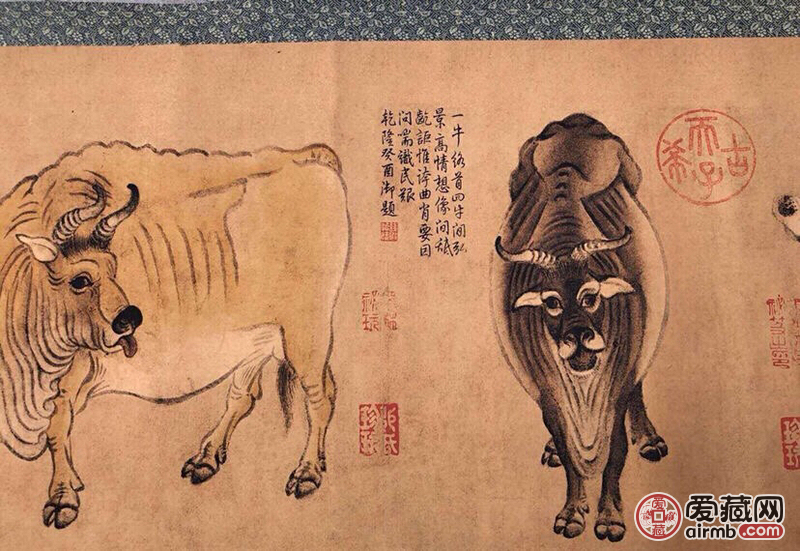 一牛絡首四牛閒弘
景高情想像間舐
齕詎惟誇曲肖要因
問喘識民艱
乾隆癸酉御題
古希天子
爱藏网
airmb.com